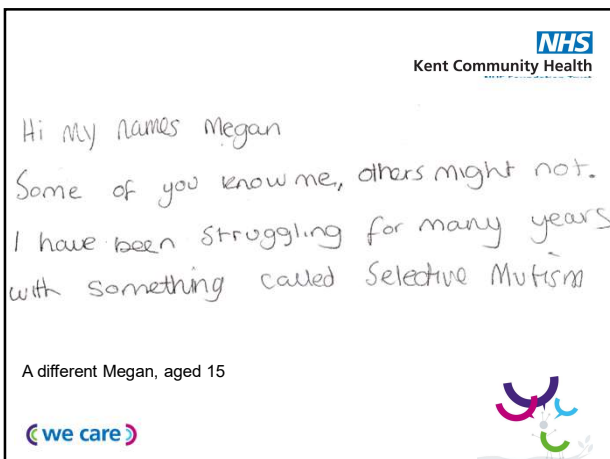 NHS
Kent Community Health
NHS Foundation Trust
Hi my names Megan
Some of you know me, others might not.
I have been struggling for many years
with something called Selective Mutism
A different Megan, aged 15
we care